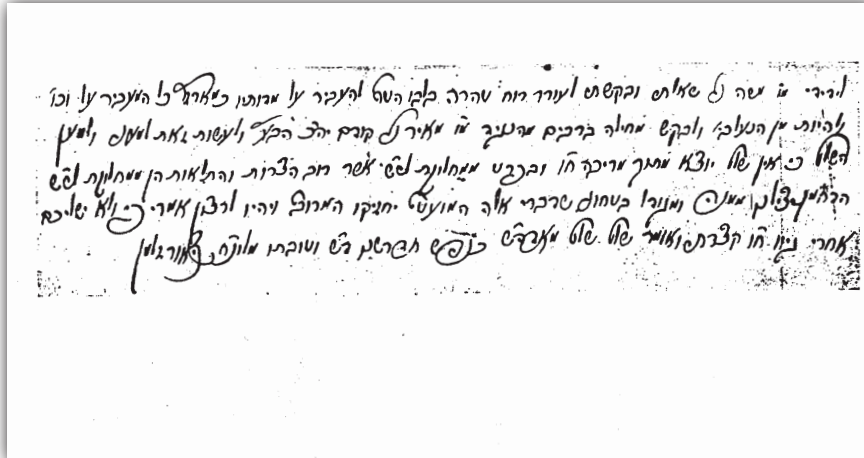 לידידי מו' משה נ"י שאלתי ובקשתי לעורר רוח טהרה בלבו הטוב להעביר על מדותיו כמארז"ל כל המעביר על וכו'
ולהיות מן הנעלבי' ולבקש מחילה ברבים מהנגיד מו' מאיר נ"י קודם יהכ"פ הבע"ל ולעשות זאת למעני ולמען
השלום כי אין שלום יוצא מתוך מריבה ח"ו ובפרט ממחלוקת לש"ש אשר רוב הצרות והתלאות הן ממחלוקת לש"ש
הרחמן יצילנו ממנה ומגודל בטחוני שדברי אלה המועטים יחזיקו המרובה ויהיו לרצון אמרי כי ולא ישליכם
אחרי גיוו ח"ו קצרתי ואומר שלום שלום מאדה"ש כנפש הדרשו"ט וטובתו